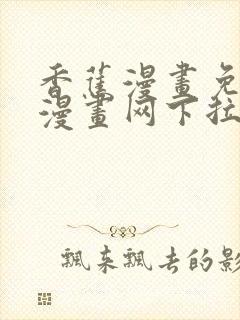 香蕉漫畫免
漫畫网下拉
飄来飄去的影